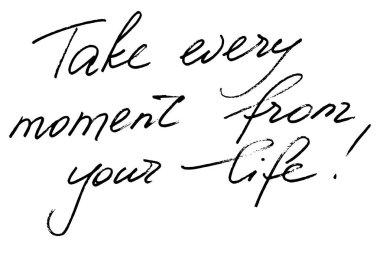 Take every
moment from,
your life!